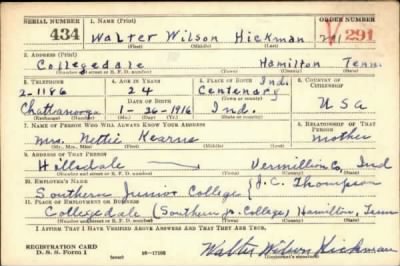 SERIAL NUMBER 1. NAME (Print) ORDER NUMBER
434 Walter Wilson Hickman 291
(First) (Middle) (Last)
2. ADDRESS (Print)
Collegedale Hamilton Tenn.
(Number and street or R. F. D. number) (Town) (County) (State)
3. TELEPHONE 4. AGE IN YEARS 5. PLACE OF BIRTH 6. COUNTRY OF CITIZENSHIP
2-1186 24 Centenary Ind.
Chattanooga DATE OF BIRTH (Town or county) U S A
1-26-1916 Ind.
(Exchange) (Number) (Mo.) (Day) (Yr.) (State or country)
7. NAME OF PERSON WHO WILL ALWAYS KNOW YOUR ADDRESS 8. RELATIONSHIP OF THAT PERSON
Mrs. Nettie Kearns mother
(Mr., Mrs., Miss) (First) (Middle) (Last)
9. ADDRESS OF THAT PERSON
Vermillion Co, Ind
(Number and street or R. F. D. number) (Town) (County) (State)
10. EMPLOYER'S NAME
Southern Junior College J.C. Thompson
11. PLACE OF EMPLOYMENT OR BUSINESS
Collegedale (Southern Jr. College) Hamilton, Tenn
(Number and street or R. F. D. number) (Town) (County) (State)
I AFFIRM THAT I HAVE VERIFIED ABOVE ANSWERS AND THAT THEY ARE TRUE.
REGISTRATION CARD
D. S. S. Form 1 (over) 16-17105 Walter Wilson Hickman